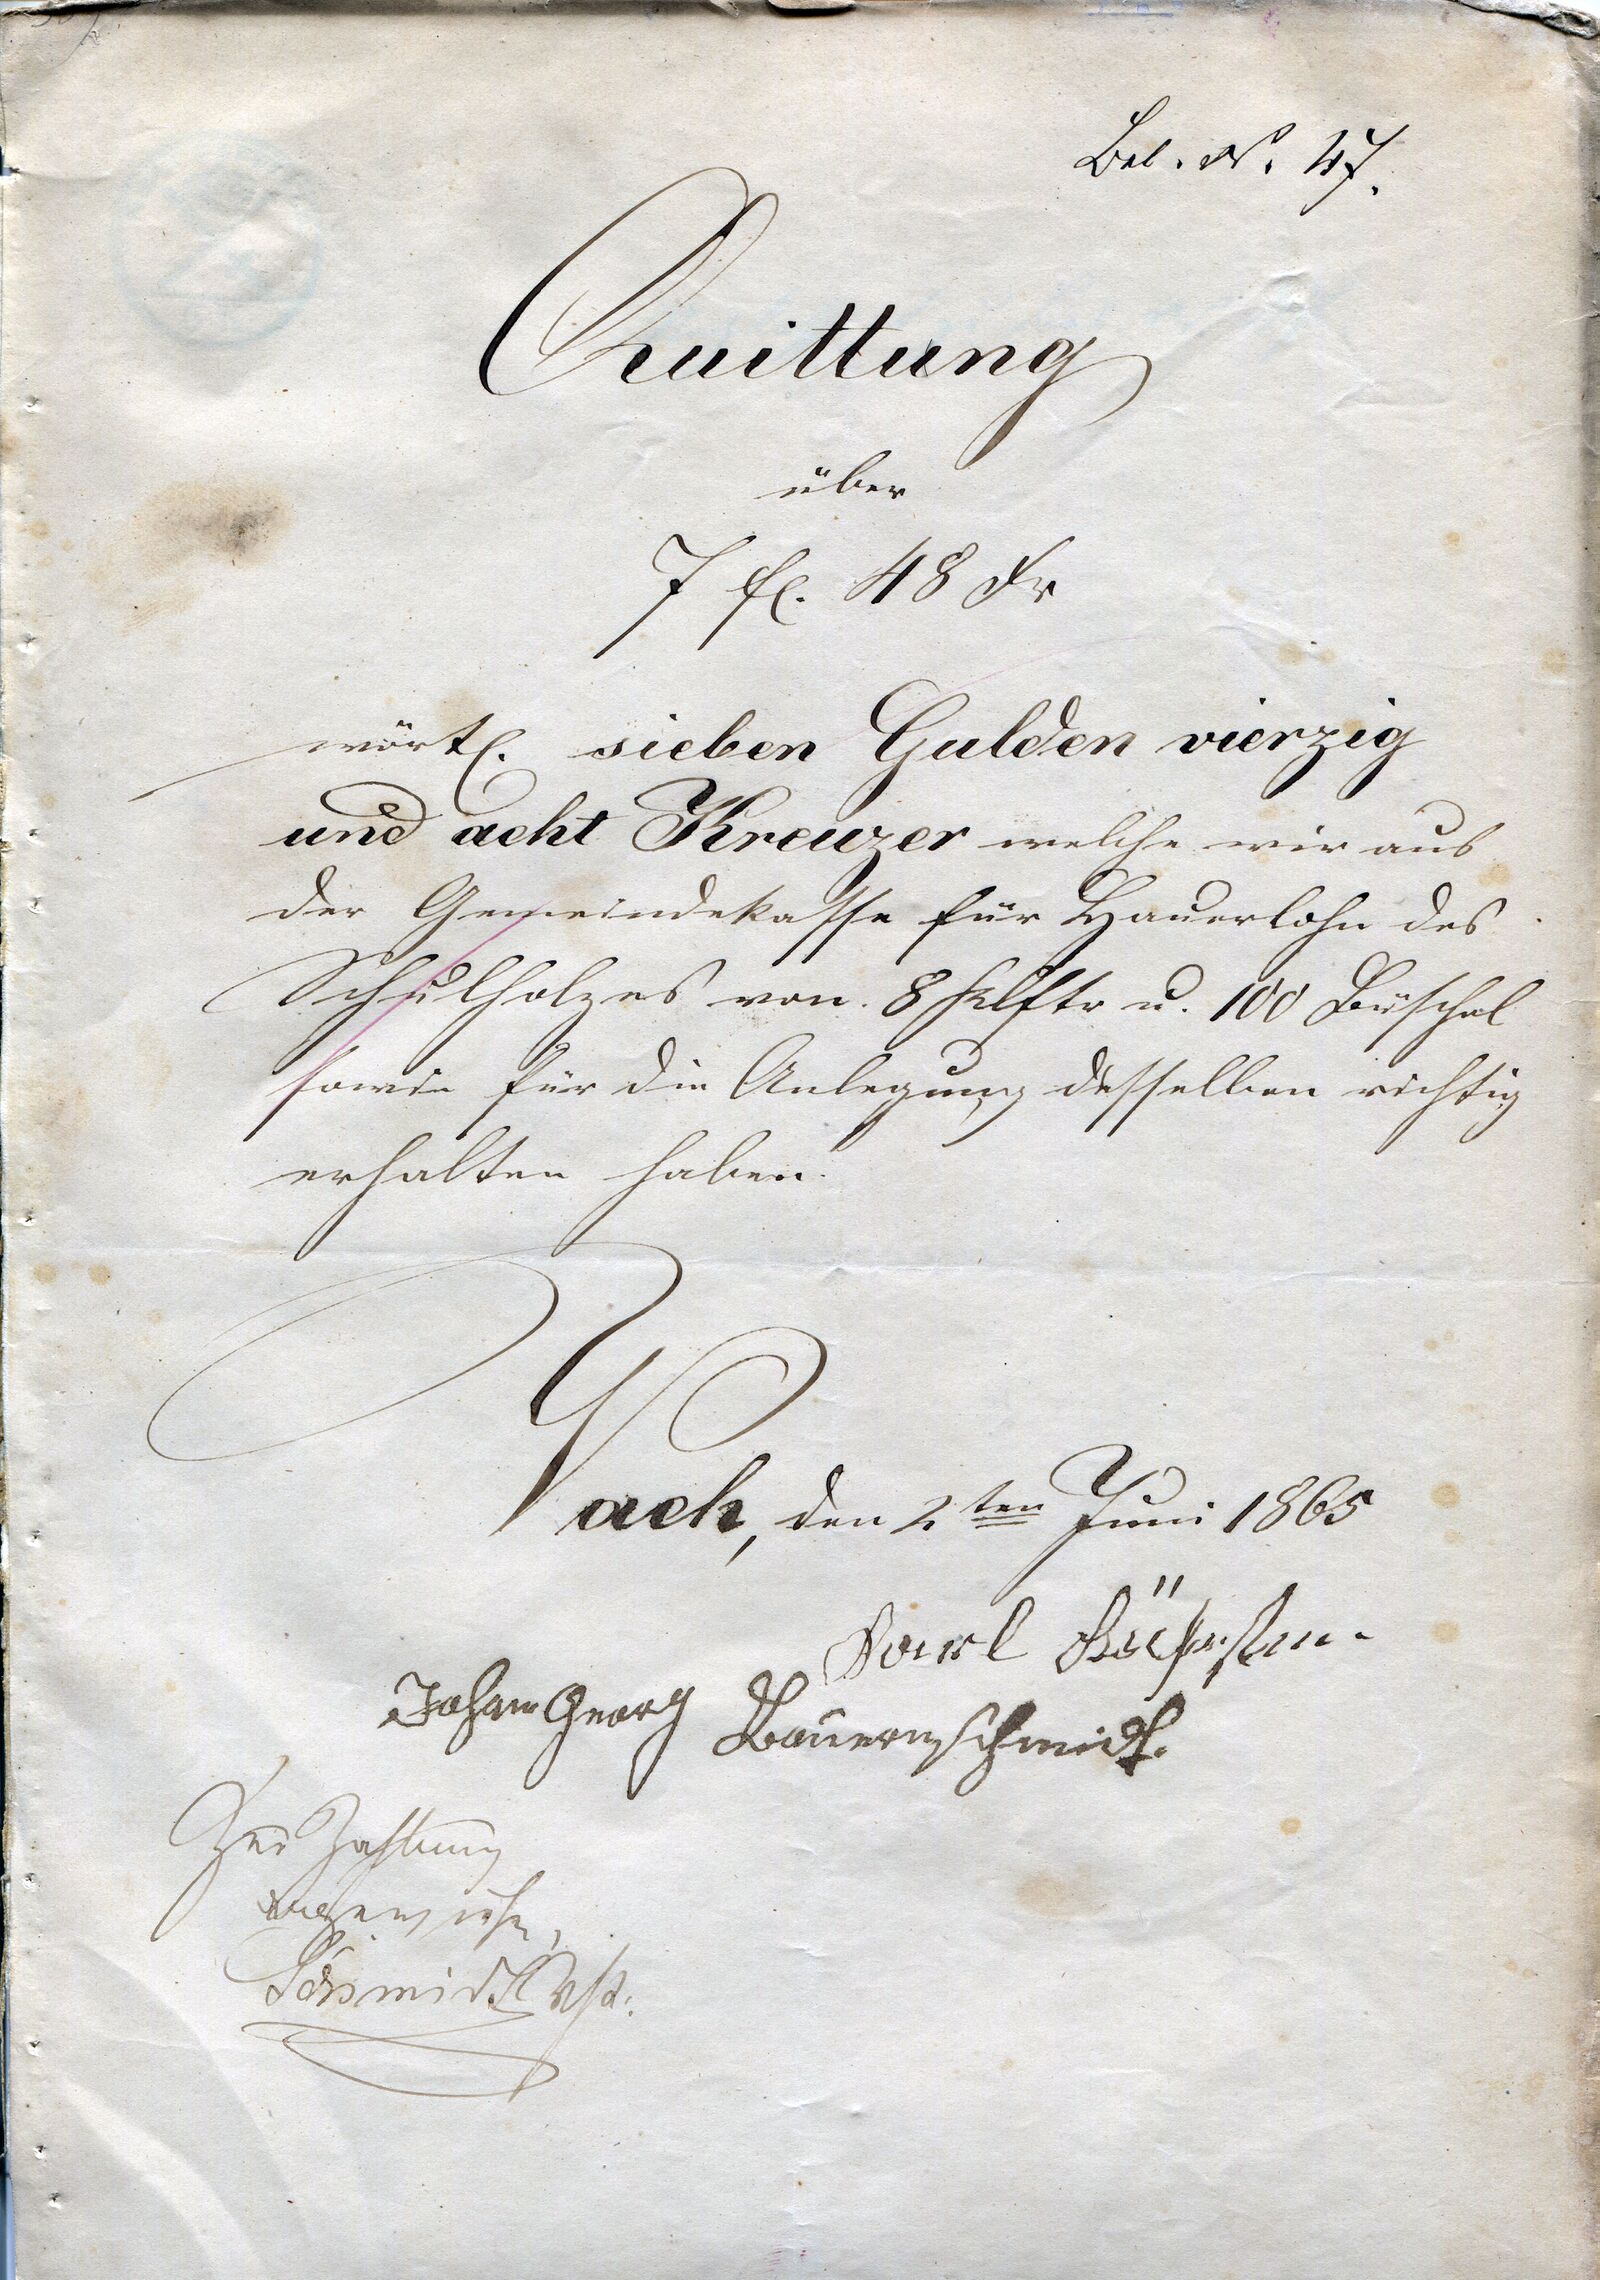 Bel. N. 47.
Quittung
über
7 fl. 48 Kr
wörtl. sieben Gulden vierzig
und acht Kreuzer welche wir aus
der Gemeindekasse für Hauerlohn des
Schulholzes von 8 Klftr u. 100 Büschel
sowie für die Anlegung desselben richtig
erhalten haben.
Vach, den 2ten Juni 1865
Karl
Johann Georg Bauernschmidt.
Zur Zahlung
angewiesen,
Schmidt Vst.